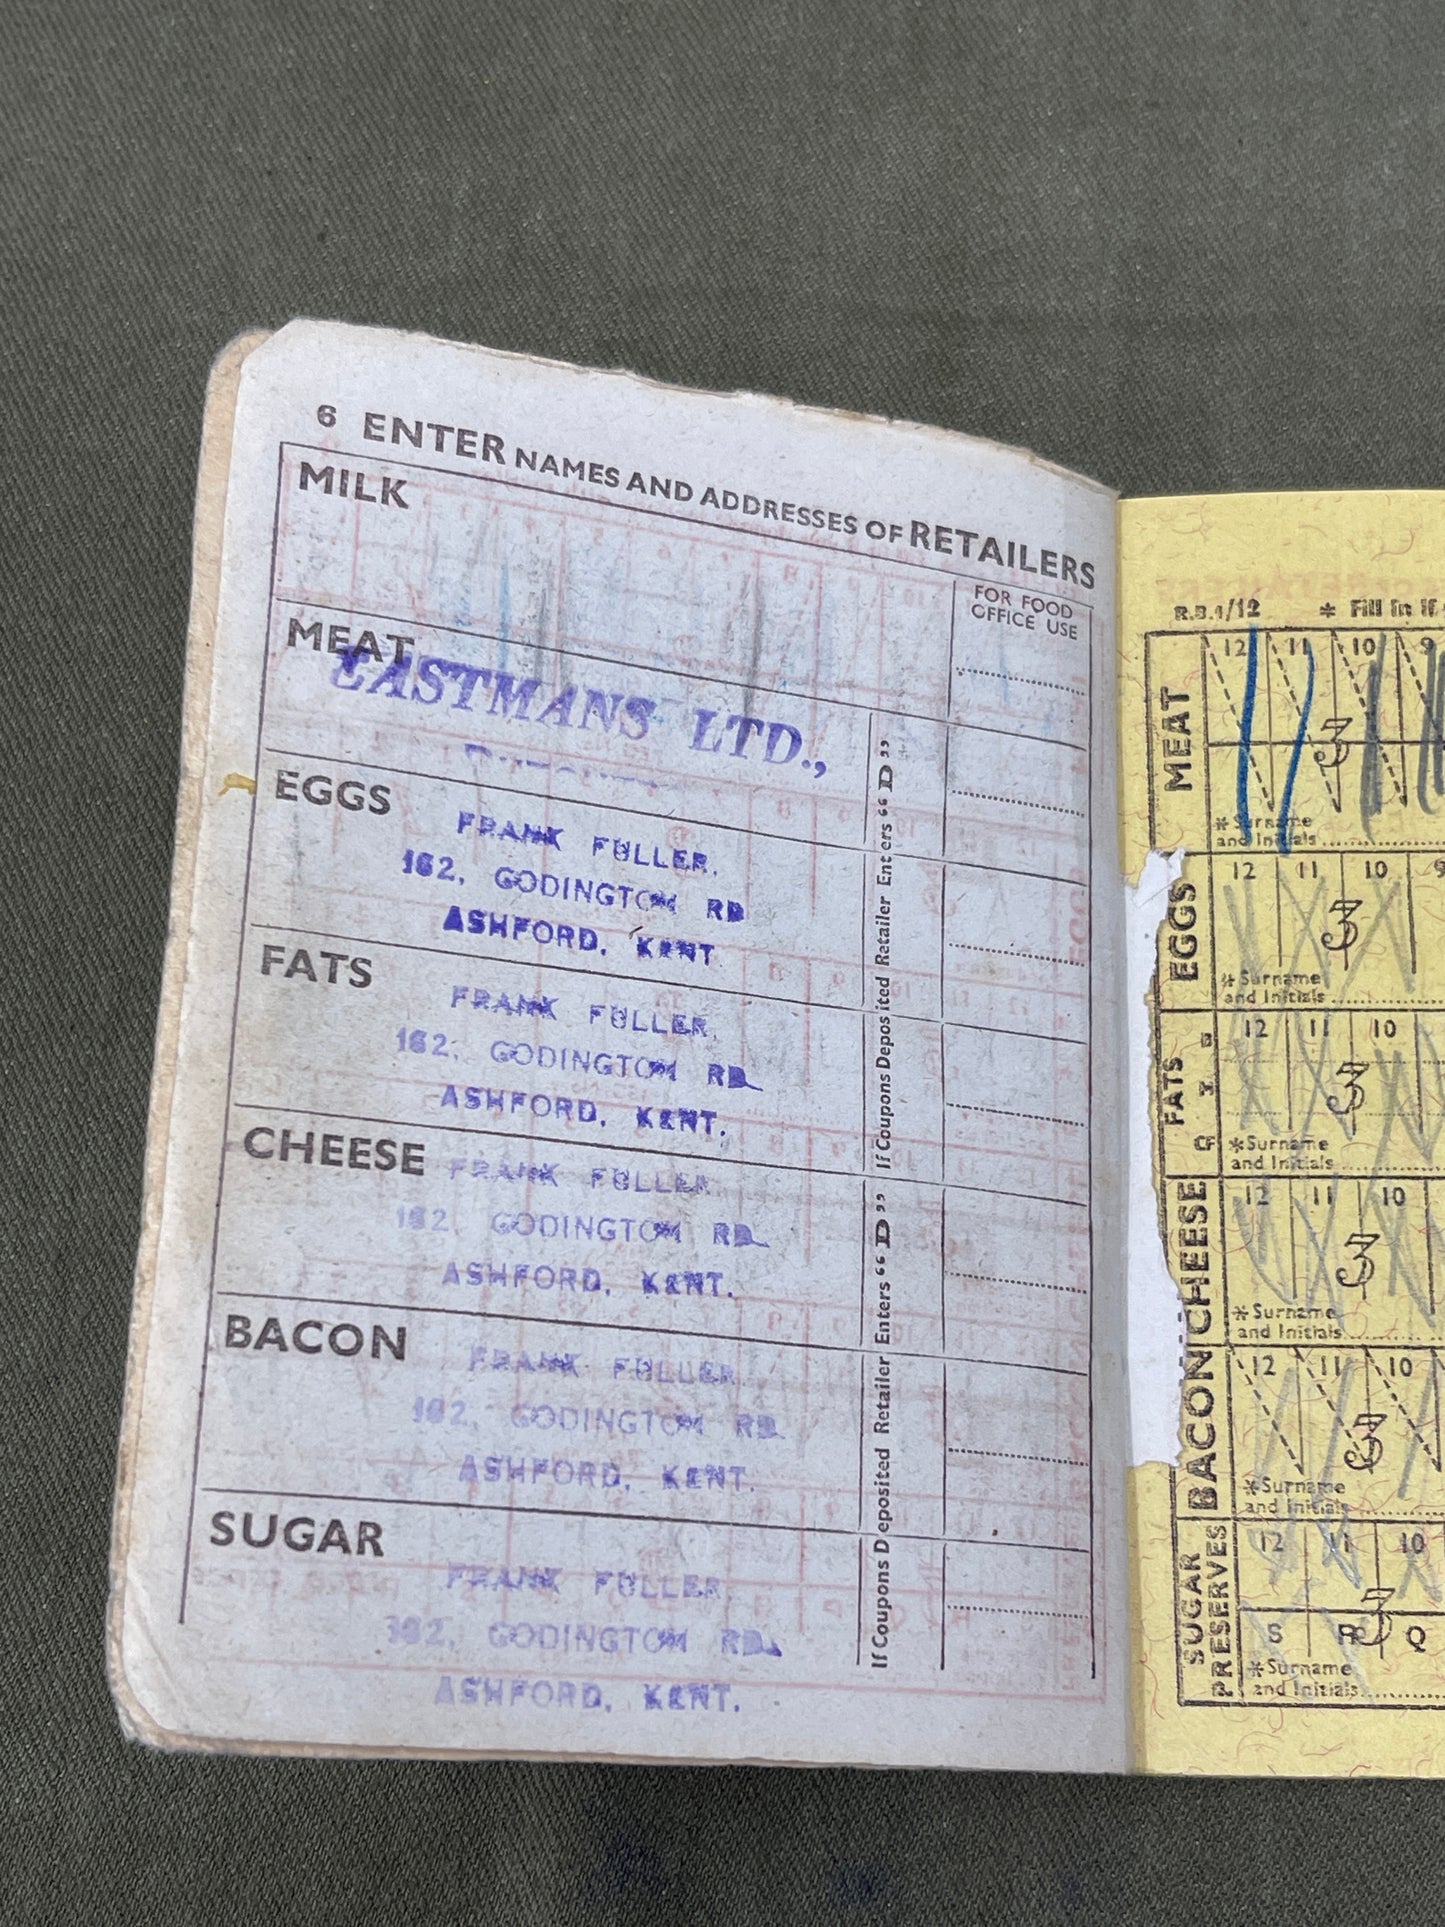 6 ENTER NAMES AND ADDRESSES OF RETAILERS
MILK
FOR FOOD
OFFICE USE
MEAT
EASTMANS LTD.,
EGGS
FRANK FULLER.
162, GODINGTON RD
ASHFORD, KENT
FATS
FRANK FULLER.
162, GODINGTON RD
ASHFORD, KENT.
CHEESE
FRANK FULLER
162, GODINGTON RD
ASHFORD, KENT.
BACON
FRANK FULLER.
162, GODINGTON RD
ASHFORD, KENT.
SUGAR
FRANK FULLER.
162, GODINGTON RD.
ASHFORD, KENT.
If Coupons Deposited Retailer Enters "D"
If Coupons Deposited Retailer Enters "D"
R.B.1/12 * Fill in if
MEAT
12 11 10 9
3
*Surname
and Initials
EGGS
12 11 10 9
3
*Surname
and Initials
FATS
12 11 10
3
CF *Surname
and Initials
CHEESE
12 11 10
3
*Surname
and Initials
BACON
12 11 10
3
*Surname
and Initials
SUGAR
PRESERVES
12 11 10
3
S R Q
*Surname
and Initials